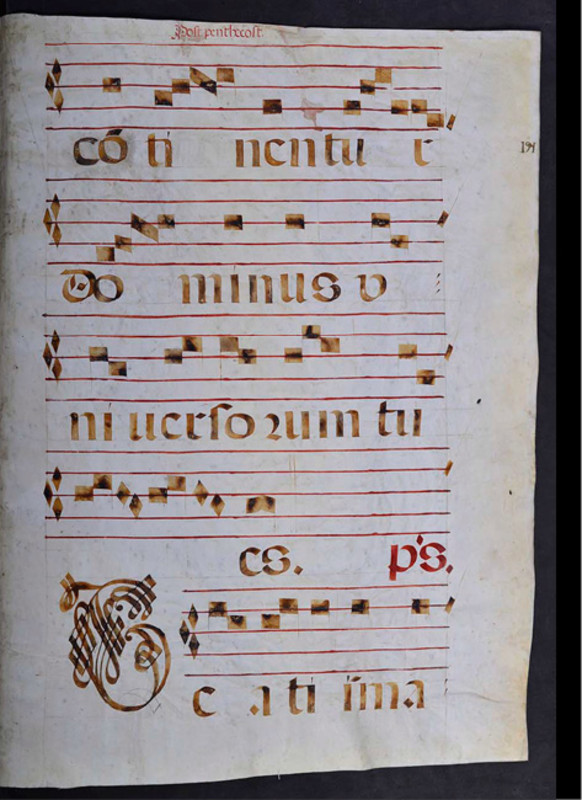 Post penthecost.
cō ti nentu r
Do minus v
ni uersorum tu
es. p̄s.
B e a ti ima